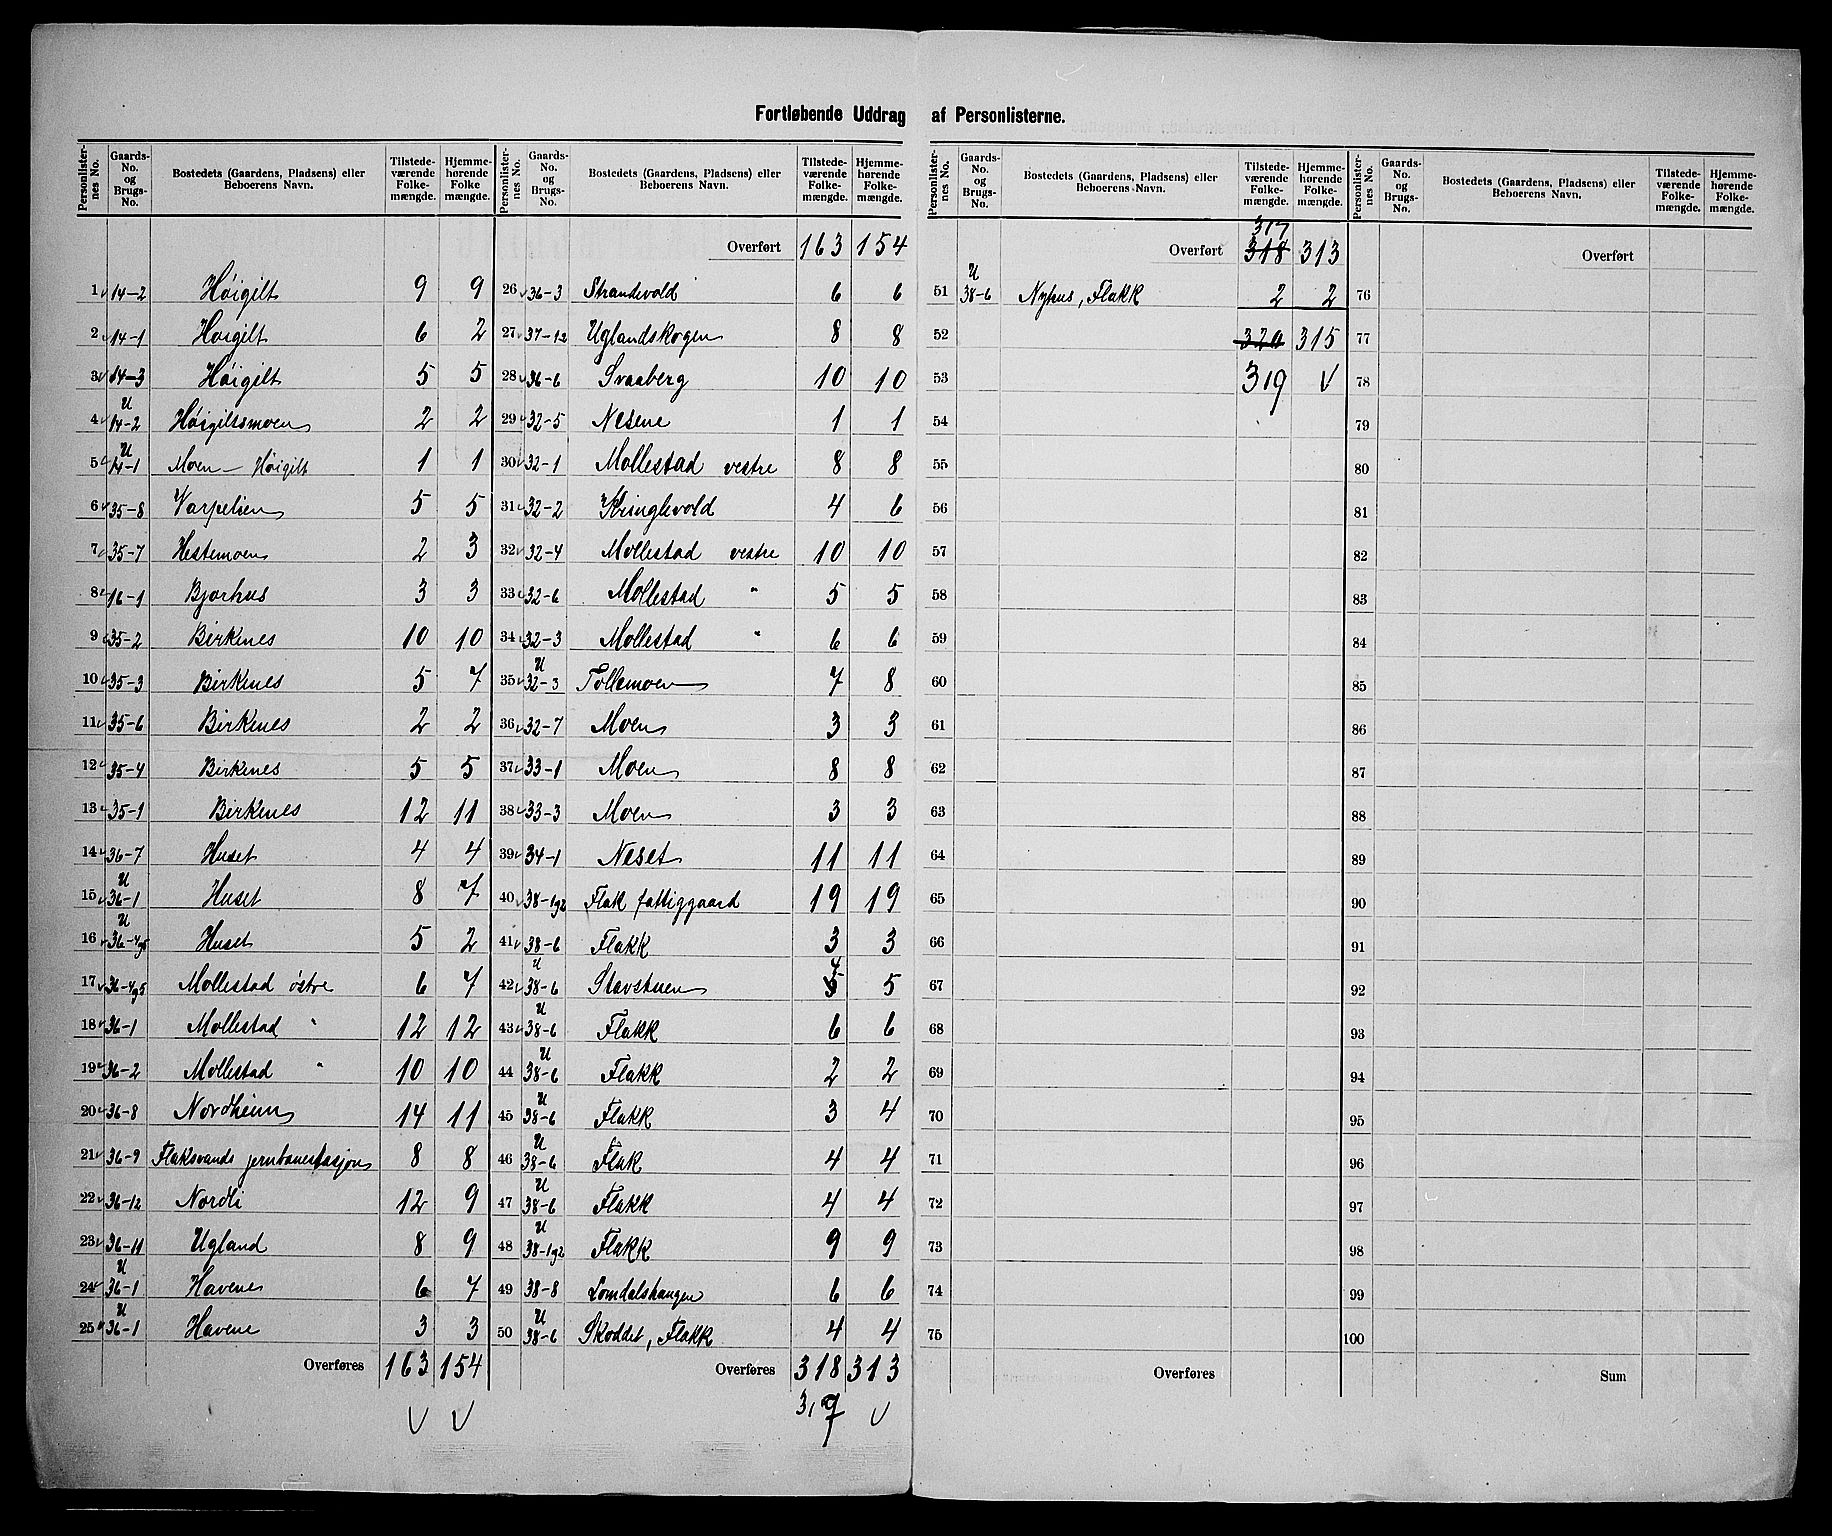 Fortløbende Uddrag af Personlisterne.
Personlister-nes No. | Gaards-No. og Brugs-No. | Bostedets (Gaardens, Pladsens) eller Beboerens Navn. | Tilstede-værende Folke-mængde. | Hjemme-hørende Folke mængde.
1 14-2 Høigilt 9 9
2 14-1 Høigilt 6 2
3 14-3 Høigilt 5 5
4 U 14-2 Høigiltsmoen 2 2
5 U 14-1 Moen - Høigilt 1 1
6 35-8 Varpelien 5 5
7 35-7 Hestemoen 2 3
8 16-1 Bjorhus 3 3
9 35-2 Birkenes 10 10
10 35-3 Birkenes 5 7
11 35-6 Birkenes 2 2
12 35-4 Birkenes 5 5
13 35-1 Birkenes 12 11
14 36-7 Huset 4 4
15 U 36-1 Huset 8 7
16 U 36-4g5 Huset 5 2
17 36-4g5 Mollestad østre 6 7
18 36-1 Mollestad " 12 12
19 36-2 Mollestad " 10 10
20 36-8 Nordheim 14 11
21 36-9 Flaksvands jernbanestasjon 8 8
22 36-12 Nordli 12 9
23 36-11 Ugland 8 9
24 U 36-1 Havene 6 7
25 U 36-1 Havene 3 3
Overføres 163 154
Personlister-nes No. | Gaards-No. og Brugs-No. | Bostedets (Gaardens, Pladsens) eller Beboerens Navn. | Tilstede-værende Folke-mængde. | Hjemme-hørende Folke-mængde.
Overført 163 154
26 36-3 Strandevold 6 6
27 37-12 Uglandskogen 8 8
28 36-6 Svaaberg 10 10
29 32-5 Nesene 1 1
30 32-1 Mollestad vestre 8 8
31 32-2 Kringlevold 4 6
32 32-4 Mollestad vestre 10 10
33 32-6 Mollestad " 5 5
34 32-3 Mollestad " 6 6
35 U 32-3 Tollemoen 7 8
36 32-7 Moen 3 3
37 33-1 Moen 8 8
38 33-3 Moen 3 3
39 34-1 Neset 11 11
40 38-1g2 Flak fattiggaard 19 19
41 38-6 Flakk 3 3
42 U 38-6 Stavstuen 4 5
43 U 38-6 Flakk 6 6
44 U 38-6 Flakk 2 2
45 U 38-6 Flakk 3 4
46 U 38-6 Flak 4 4
47 U 38-6 Flakk 4 4
48 U 38-1g2 Flakk 9 9
49 38-8 Lomdalshaugen 6 6
50 U 38-6 Skoddet, Flakk 4 4
Overføres 318 313
317
Personlister-nes No. | Gaards-No. og Brugs-No. | Bostedets (Gaardens, Pladsens) eller Beboerens Navn. | Tilstede-værende Folke-mængde. | Hjemme-hørende Folke-mængde.
317
Overført 318 313
51 U 38-6 Nyhus, Flakk 2 2
52 320 315
53 319
54
55
56
57
58
59
60
61
62
63
64
65
66
67
68
69
70
71
72
73
74
75
Overføres
Personlister-nes No. | Gaards-No. og Brugs-No. | Bostedets (Gaardens, Pladsens) eller Beboerens Navn. | Tilstede-værende Folke-mængde. | Hjemme-hørende Folke-mængde.
Overført
76
77
78
79
80
81
82
83
84
85
86
87
88
89
90
91
92
93
94
95
96
97
98
99
100
Sum